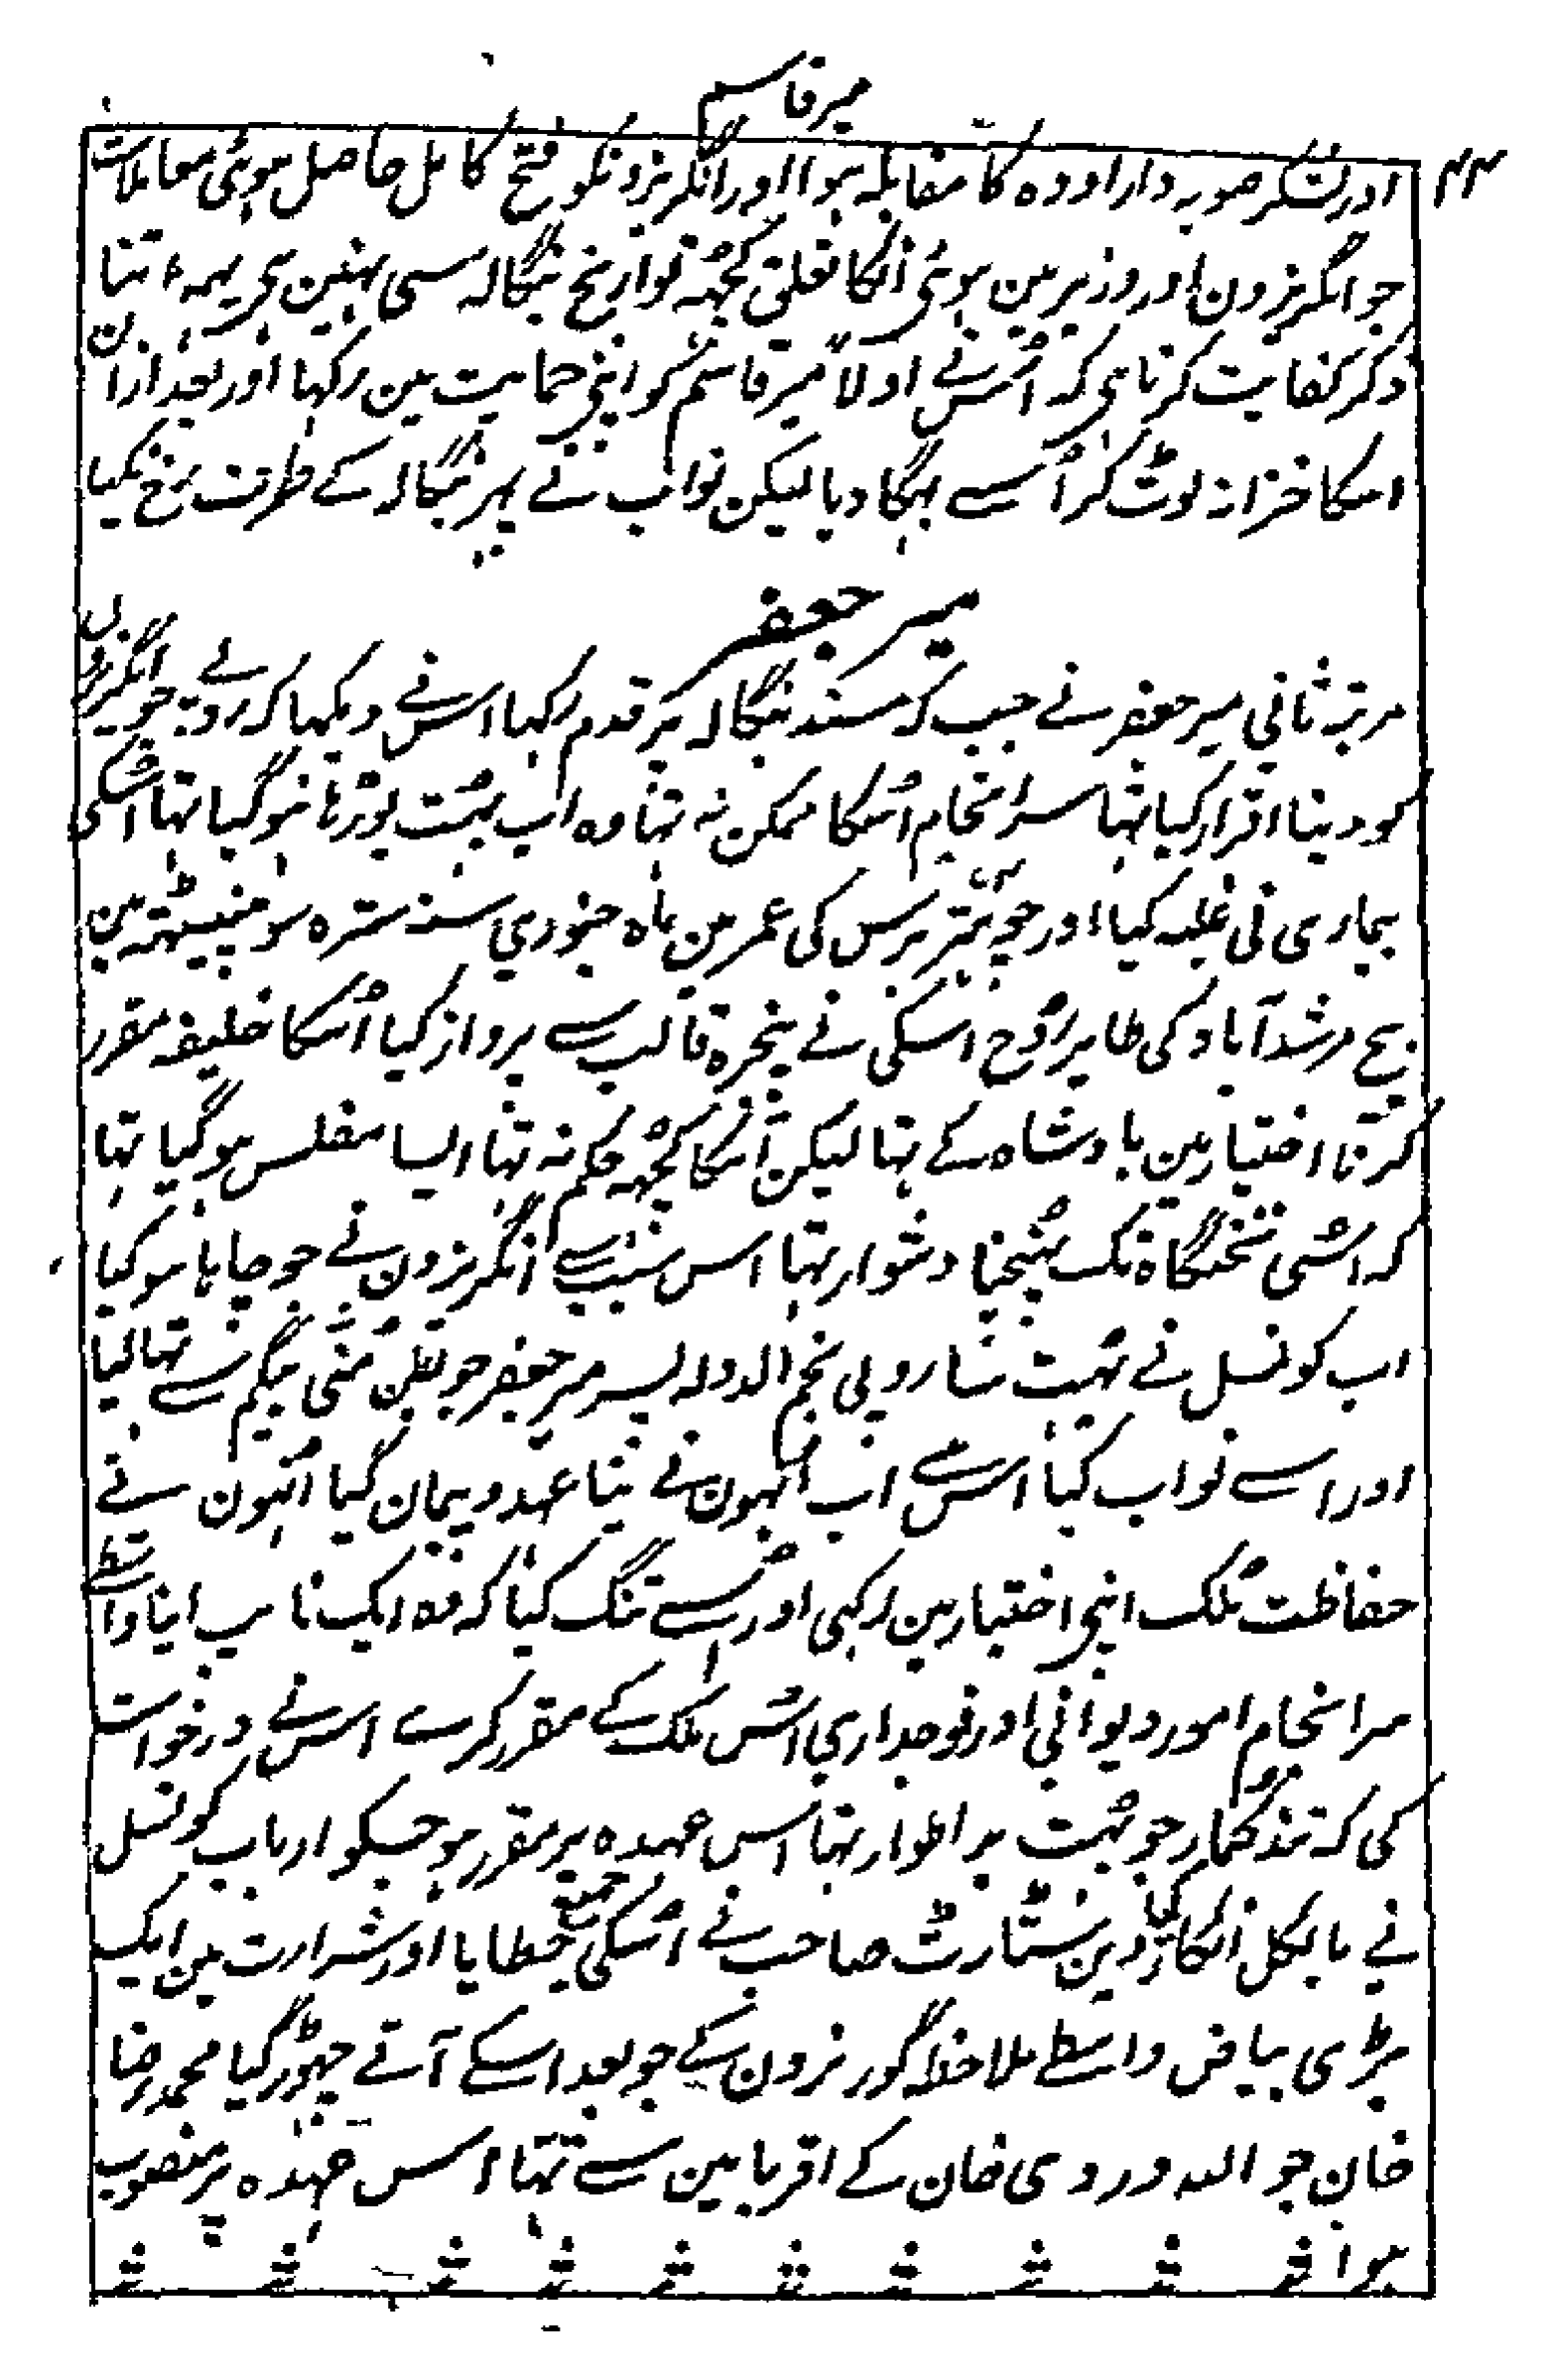 میر قاسم
۲۴۴
اور لشکر صوبہ دار اودہ کا مقابلہ ہوا اور انگریزونکو فتح کامل حاصل ہوئی معاملات
جو انگریزون اور وزیر مین ہوئی انکا تعلق کچہہ تواریخ بنگالہ سی نہین ہی یہہ اتنا
ذکر کفایت کرتا ہی کہ اُس نے اولاً میر قاسم کو اپنی حمایت مین رکہا اور بعد ازان
اسکا خزانہ لوٹ کر اُسے بہگا دیا لیکن نواب نے پہر بنگالہ کے طرف رخ نکیا
میر جعفر
مرتبہ ثانی میر جعفر نے جب کہ مسند بنگالہ پر قدم رکہا اس نے دیکہا کہ روپئے جو انگریزون
کو دینا اقرار کیا تہا سرانجام اُسکا ممکن نہ تہا وہ اب بہت بوڑہا ہو گیا تہا اُسکی
بیماری نی غلبہ کیا اور چوہتر برس کی عمر مین ماہ جنوری سنہ سترہ سو پینسٹہہ مین
بیچ مرشدآباد کی طایر روح اسکی نے پنجرہ قالب سے پرواز کیا اُسکا خلیفہ مقرر
کرنا اختیار مین بادشاہ کے تہا لیکن اُسکا کچہہ حکم نہ تہا ایسا مفلس ہو گیا تہا
کہ اسی تختگاہ تک پہنچنا دشوار تہا اس سبب سے انگریزون نے جو چاہا سو کیا
اب کونسل نے بہت سا روپی نجم الدولہ پسر میر جعفر جو بطن منی بیگم سے تہا لیا
اور اسے نواب کیا اس سے اب اُنہون نے نیا عہد و پیمان کیا اُنہون نے
حفاظت ملک اپنی اختیار مین رکہی اور اُسے تنگ کیا کہ وہ ایک نایب اپنا واسطے
سرانجام امور دیوانی اور فوجداری اُس ملک کے مقرر کرے اس نے درخواست
کی کہ نندکمار جو بہت بد اطوار تہا اس عہدہ پر مقرر ہو جسکو ارباب کونسل
نے بالکل انکار کیا وین سٹارٹ صاحب نے اُسکی خطایا اور شرارت مین ایک
بڑی بیاض واسطے ملاحظہ گورنرون کے جو بعد اسکے آتے چہوڑ گیا محمد رضا
خان جو اللہ وردی خان کے اقربا مین سے تہا اس عہدہ پر منصوب
ہوا